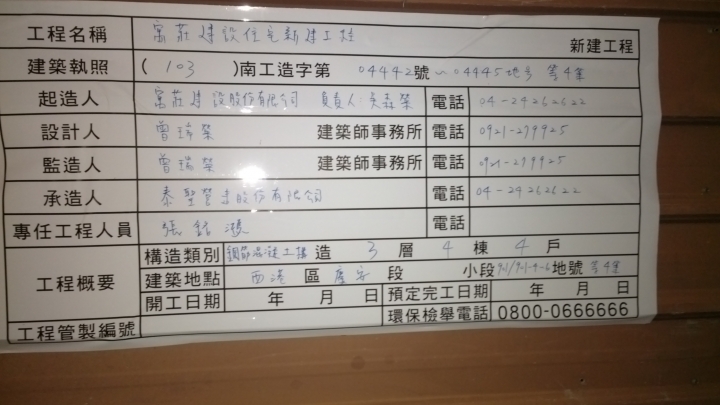 工程名稱 富莊建設住宅新建工程 新建工程
建築執照 (103)南工造字第 04442號~04445地号 等4筆
起造人 富莊建設股份有限公司 負責人: 森榮 電話 04-24262622
設計人 曾瑞榮 建築師事務所 電話 0921-279925
監造人 曾瑞榮 建築師事務所 電話 0921-279925
承造人 泰聖營造股份有限公司 電話 04-24262622
專任工程人員 張 電話
工程概要 構造類別 鋼筋混凝土 造 3 層 4 棟 4 戶
建築地點 西港 區 慶安 段 小段 地號 等4筆
開工日期 年 月 日 預定完工日期 年 月 日
工程管製編號 環保檢舉電話 0800-0666666